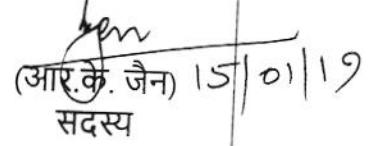 (आर.के. जैन) 15/01/19
सदस्य